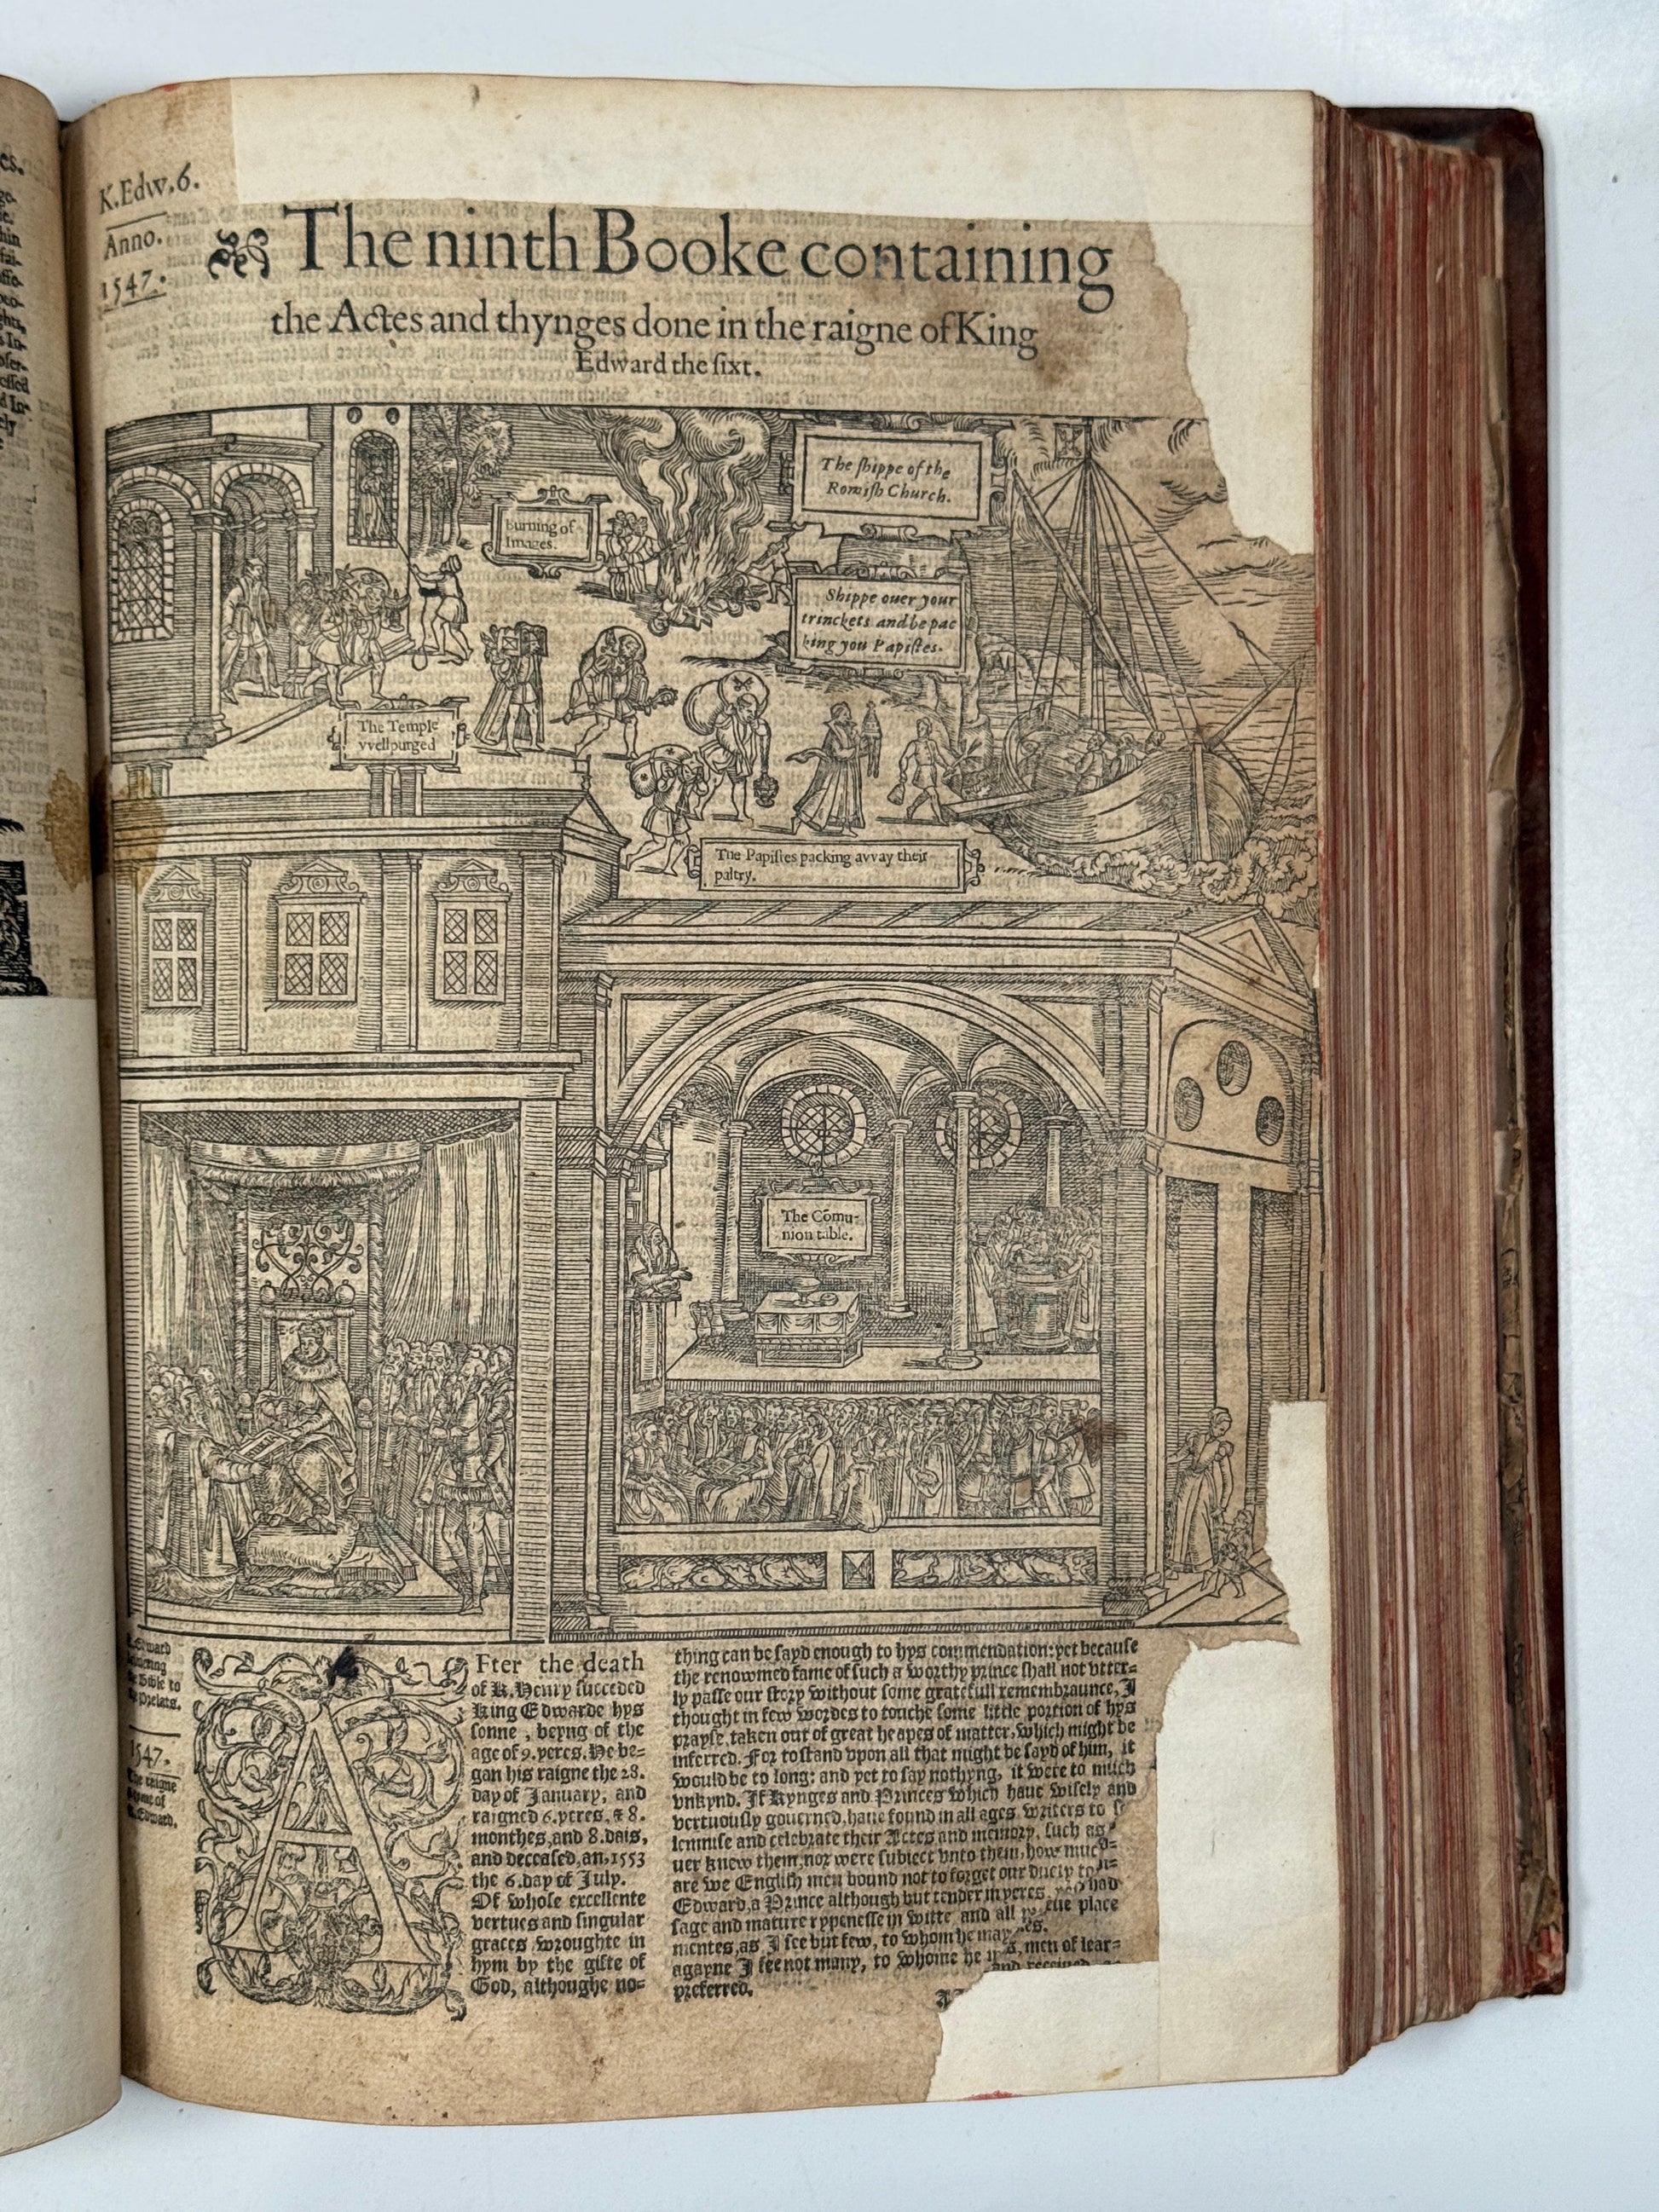 K.Edw.6.
Anno.
1547.
The ninth Booke containing
the Actes and thynges done in the raigne of King
Edward the sixt.
The shippe of the
Romish Church.
Burning of
Images.
Shippe ouer your
trinckets and be pac
king you Papistes.
The Temple
vvell purged
The Papistes packing avvay their
paltry.
The Cōmu-
nion table.
Bible to
prelats.
1547.
Edward.
AFter the death
of K. Henry succeded
King Edwarde hys
sonne, beyng of the
age of 9. yeres. He be-
gan his raigne the 28.
day of January, and
raigned 6. yeres, & 8.
monthes, and 8. dais,
and deceased, an. 1553
the 6. day of July.
Of whose excellente
vertues and singular
graces wroughte in
hym by the gifte of
God, althoughe no-
thing can be sayd enough to hys commendation: yet because
the renowmed fame of such a worthy prince shall not vtter-
ly passe our story without some gratefull remembraunce, I
thought in few wordes to touche some little portion of hys
prayse, taken out of great heapes of matter, which might be
inferred. For to stand vpon all that might be sayd of him, it
would be to long: and yet to say nothyng, it were to much
vnkynd. If Kynges and Princes which haue wisely and
vertuously gouerned, haue found in all ages writers to
lemnise and celebrate their Actes and memory, such as
uer knew them, nor were subiect vnto them, how
are we English men bound not to forget our duety to
Edward, a Prince although but tender in yeres, had
sage and mature rypenesse in witte and all place
mentes, as I see but few, to whom he may
agayne I see not many, to whome he men of lear-
preferred. and